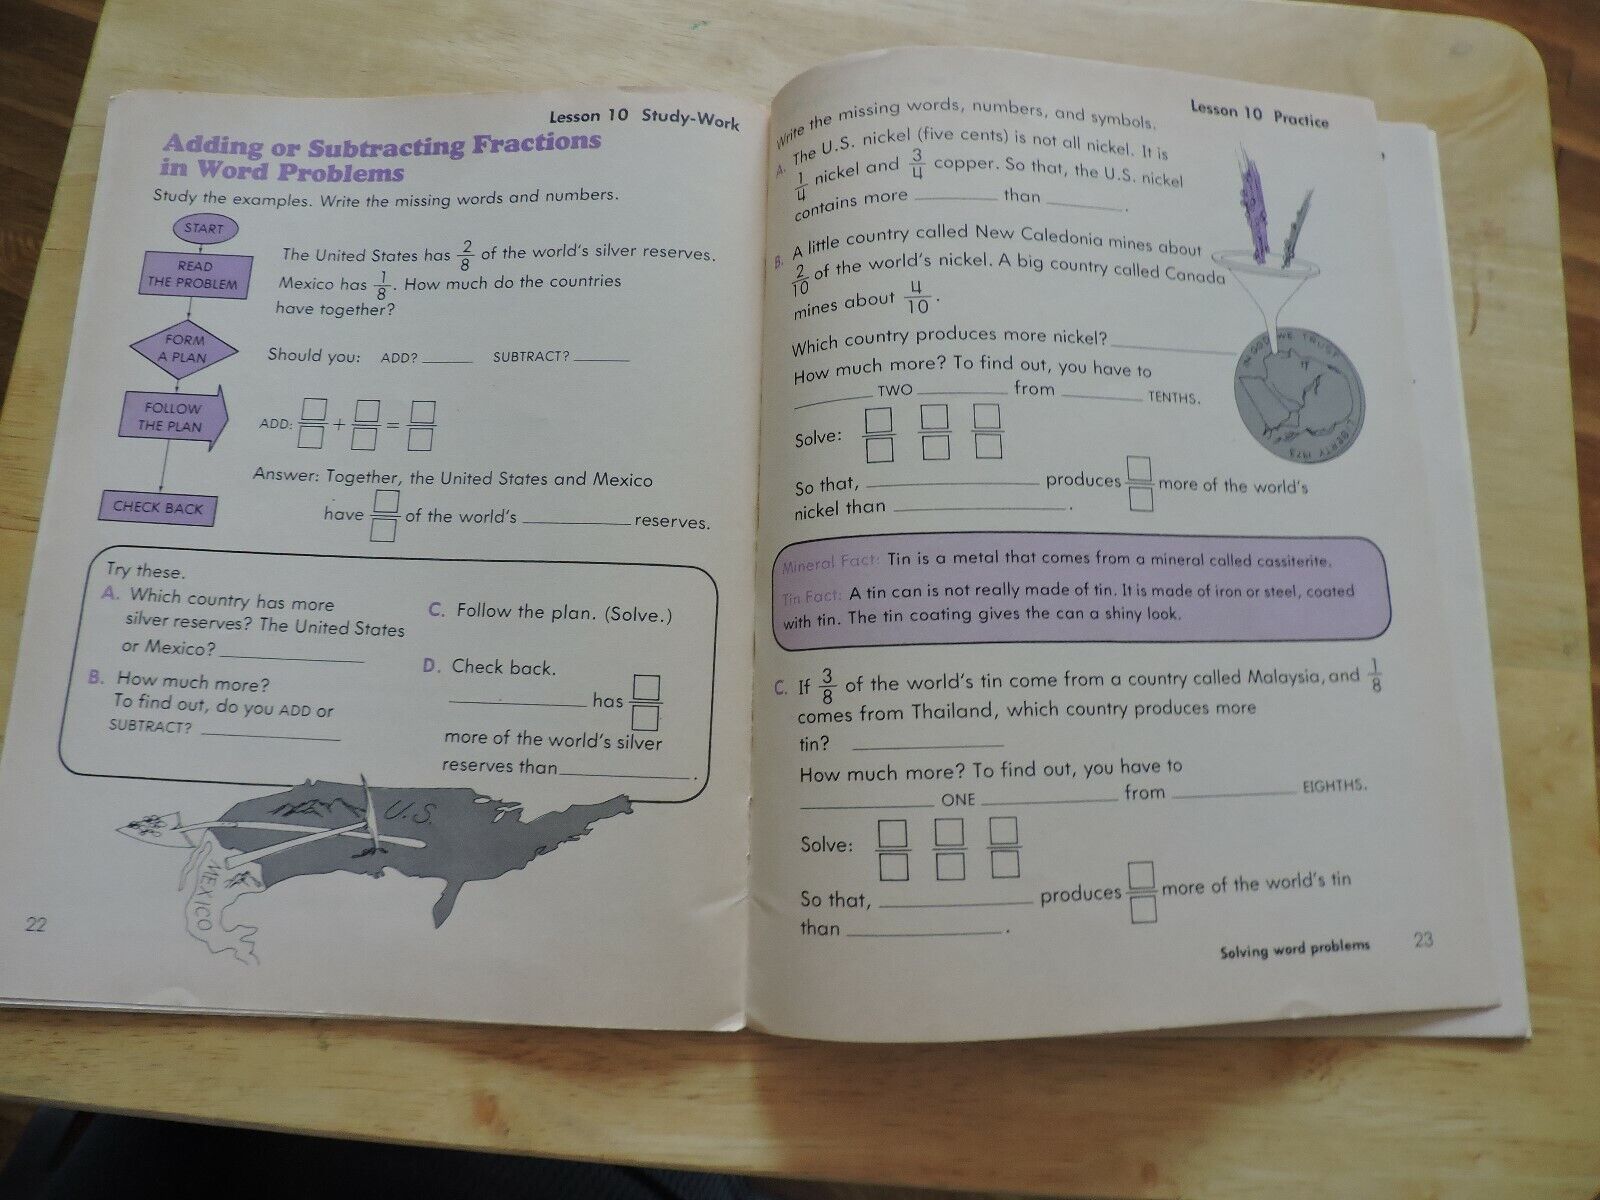 Lesson 10 Study-Work
Adding or Subtracting Fractions
in Word Problems
Study the examples. Write the missing words and numbers.
START
READ
THE PROBLEM
The United States has 2/8 of the world's silver reserves.
Mexico has 1/8. How much do the countries
have together?
FORM
A PLAN
Should you: ADD? ______ SUBTRACT? ______
FOLLOW
THE PLAN
ADD: □/□ + □/□ = □/□
CHECK BACK
Answer: Together, the United States and Mexico
have □/□ of the world's ____________ reserves.
Try these.
A. Which country has more
silver reserves? The United States
or Mexico? ________________
B. How much more?
To find out, do you ADD or
SUBTRACT? ________________
C. Follow the plan. (Solve.)
D. Check back.
________________ has □/□
more of the world's silver
reserves than ________________.
U.S.
MEXICO
22
Lesson 10 Practice
Write the missing words, numbers, and symbols.
A. The U.S. nickel (five cents) is not all nickel. It is
1/4 nickel and 3/4 copper. So that, the U.S. nickel
contains more _________ than _________.
B. A little country called New Caledonia mines about
2/10 of the world's nickel. A big country called Canada
mines about 4/10.
Which country produces more nickel? ______________
How much more? To find out, you have to
_________ TWO __________ from _________ TENTHS.
Solve: □/□ □/□ □/□
So that, ____________________ produces □/□ more of the world's
nickel than ____________________.
IN GOD WE TRUST
LIBERTY 1973
Mineral Fact: Tin is a metal that comes from a mineral called cassiterite.
Tin Fact: A tin can is not really made of tin. It is made of iron or steel, coated
with tin. The tin coating gives the can a shiny look.
C. If 3/8 of the world's tin come from a country called Malaysia, and 1/8
comes from Thailand, which country produces more
tin? ________________
How much more? To find out, you have to
______________ ONE ______________ from ______________ EIGHTHS.
Solve: □/□ □/□ □/□
So that, ________________ produces □/□ more of the world's tin
than ________________.
Solving word problems 23